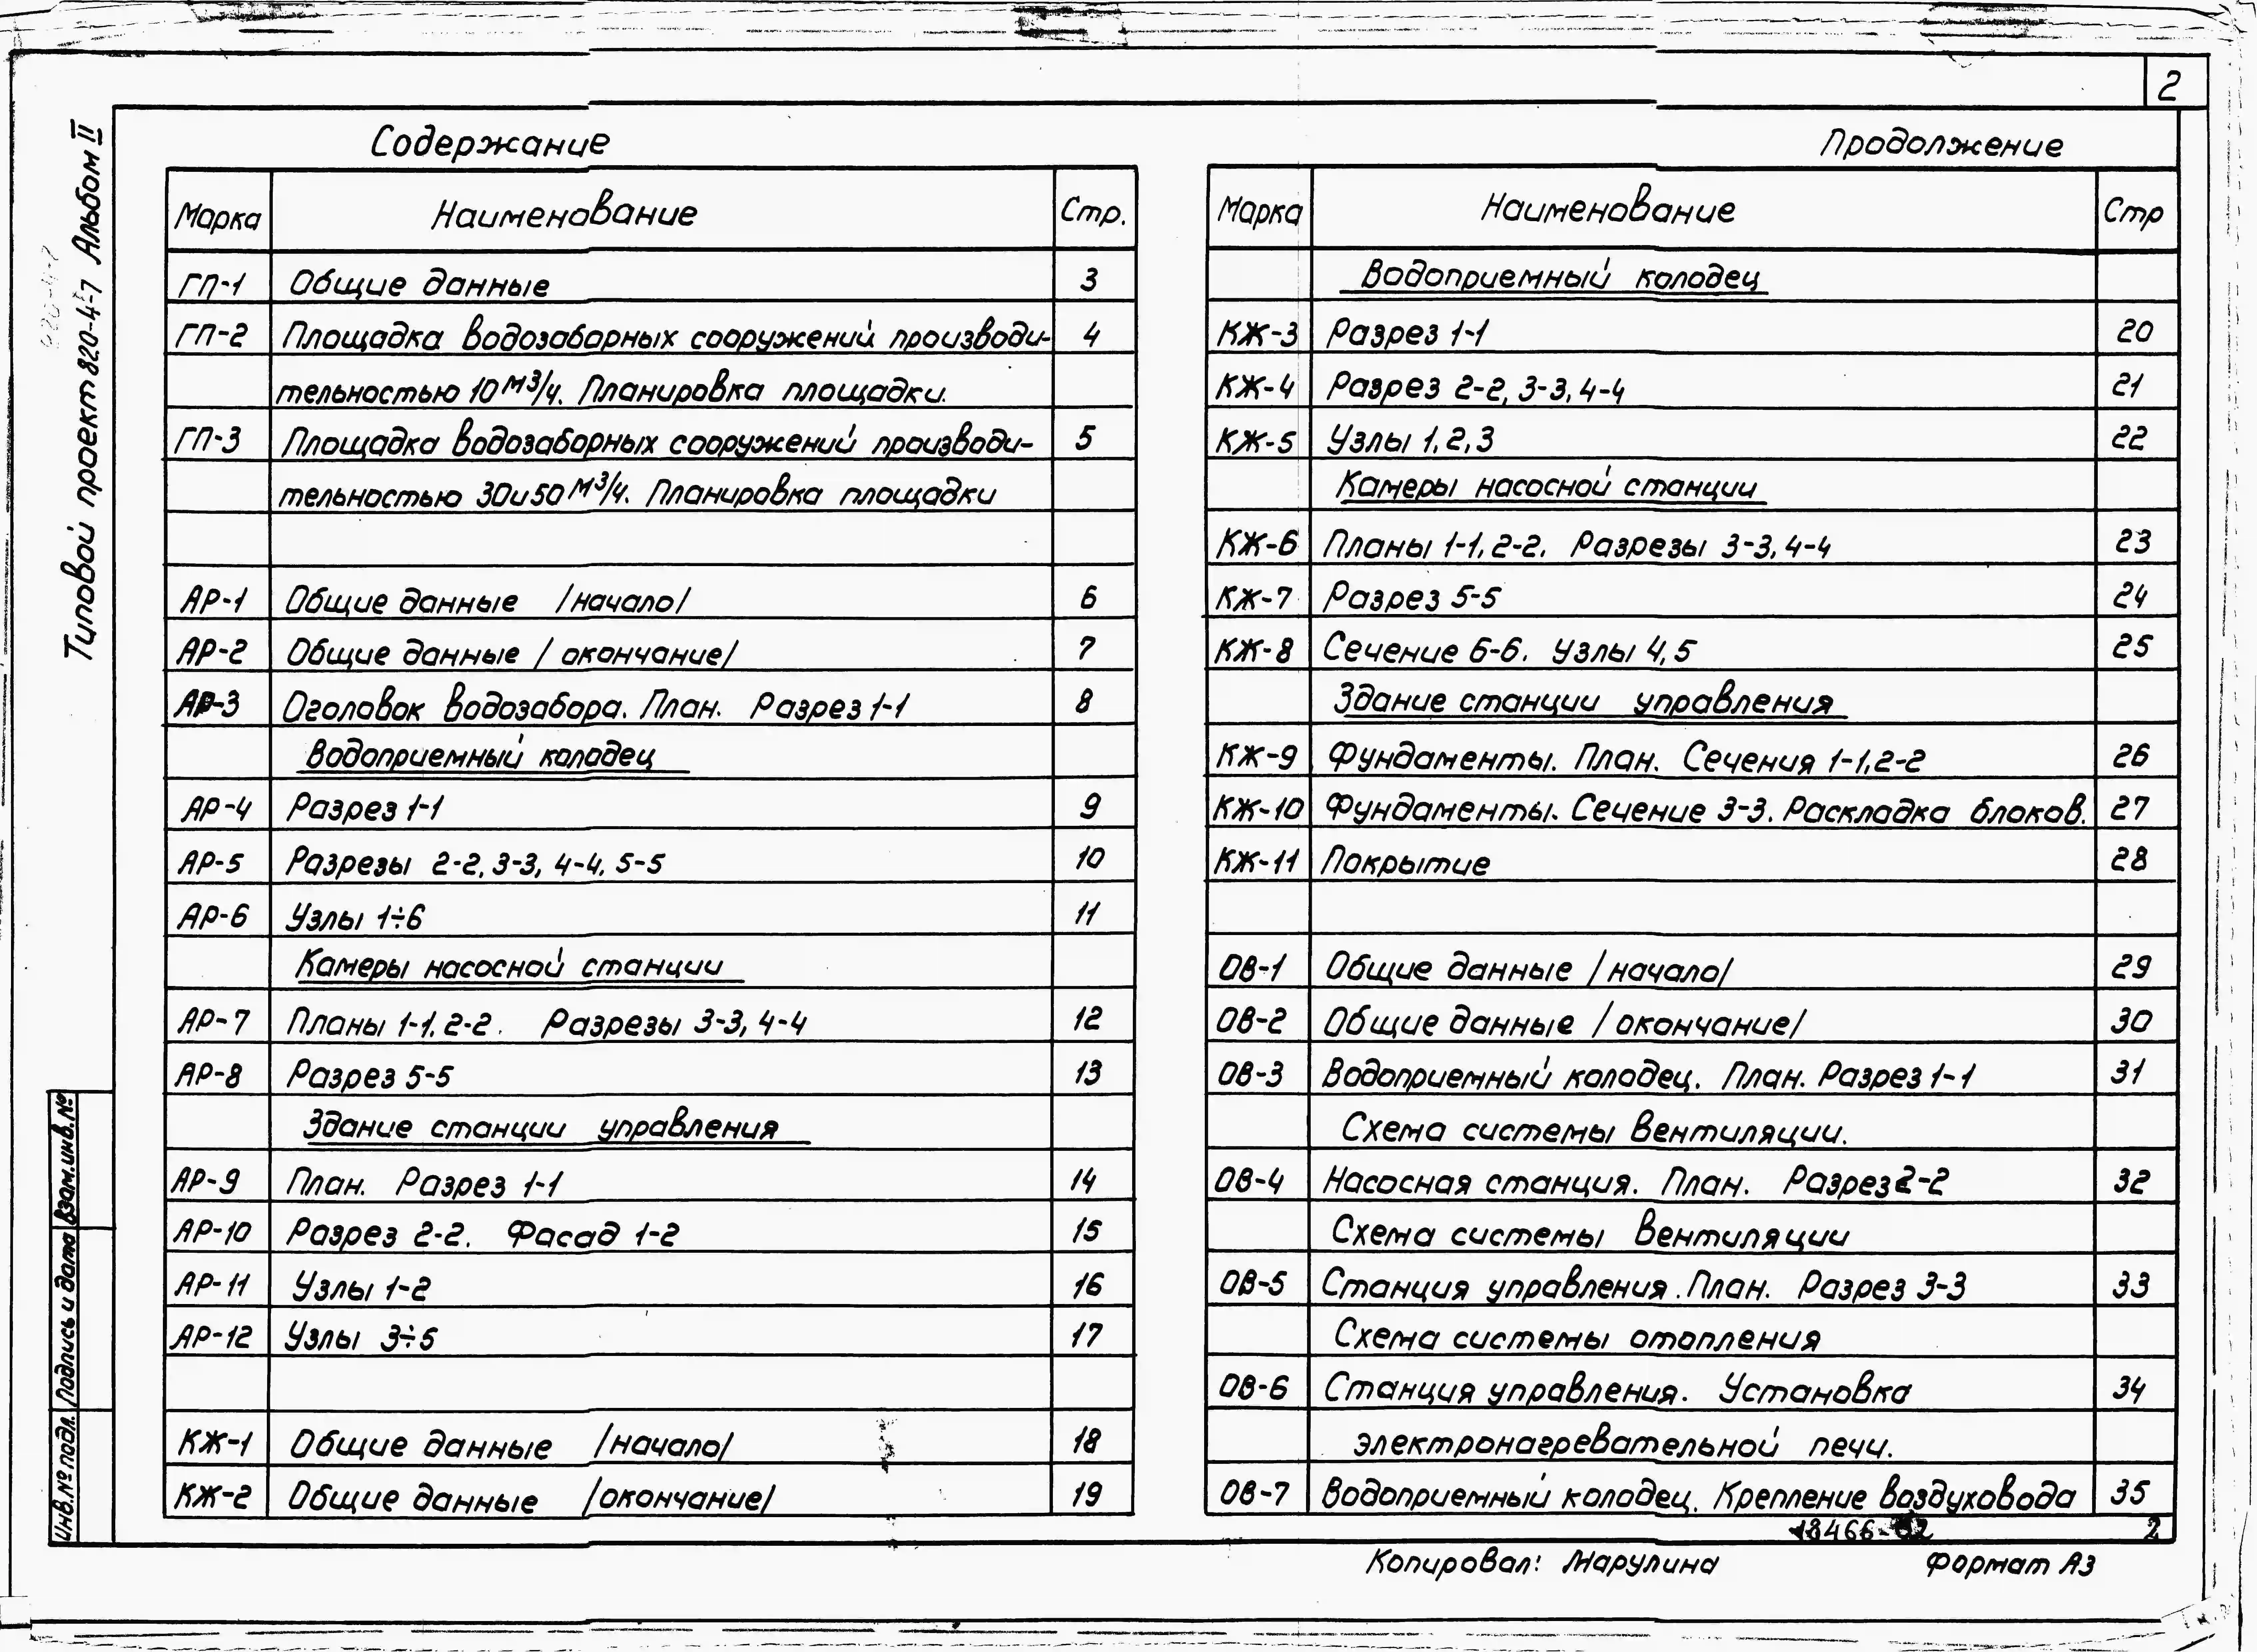 2
Типовой проект 820-4-7 Альбом II
Содержание
Марка Наименование Стр.
ГП-1 Общие данные 3
ГП-2 Площадка водозаборных сооружений производи- 4
тельностью 10 м3/ч. Планировка площадки.
ГП-3 Площадка водозаборных сооружений производи- 5
тельностью 30 и 50 м3/ч. Планировка площадки
АР-1 Общие данные /начало/ 6
АР-2 Общие данные /окончание/ 7
АР-3 Оголовок водозабора. План. Разрез 1-1 8
Водоприемный колодец
АР-4 Разрез 1-1 9
АР-5 Разрезы 2-2, 3-3, 4-4, 5-5 10
АР-6 Узлы 1÷6 11
Камеры насосной станции
АР-7 Планы 1-1, 2-2. Разрезы 3-3, 4-4 12
АР-8 Разрез 5-5 13
Здание станции управления
АР-9 План. Разрез 1-1 14
АР-10 Разрез 2-2. Фасад 1-2 15
АР-11 Узлы 1-2 16
АР-12 Узлы 3÷5 17
КЖ-1 Общие данные /начало/ 18
КЖ-2 Общие данные /окончание/ 19
Продолжение
Марка Наименование Стр
Водоприемный колодец
КЖ-3 Разрез 1-1 20
КЖ-4 Разрез 2-2, 3-3, 4-4 21
КЖ-5 Узлы 1, 2, 3 22
Камеры насосной станции
КЖ-6 Планы 1-1, 2-2. Разрезы 3-3, 4-4 23
КЖ-7 Разрез 5-5 24
КЖ-8 Сечение 6-6. Узлы 4, 5 25
Здание станции управления
КЖ-9 Фундаменты. План. Сечения 1-1, 2-2 26
КЖ-10 Фундаменты. Сечение 3-3. Раскладка блоков. 27
КЖ-11 Покрытие 28
ОВ-1 Общие данные /начало/ 29
ОВ-2 Общие данные /окончание/ 30
ОВ-3 Водоприемный колодец. План. Разрез 1-1 31
Схема системы вентиляции.
ОВ-4 Насосная станция. План. Разрез 2-2 32
Схема системы вентиляции
ОВ-5 Станция управления. План. Разрез 3-3 33
Схема системы отопления
ОВ-6 Станция управления. Установка 34
электронагревательной печи.
ОВ-7 Водоприемный колодец. Крепление воздуховода 35
18466-02 2
Копировал: Марулина Формат А3
Инв.№ подл. Подпись и дата Взам.инв.№